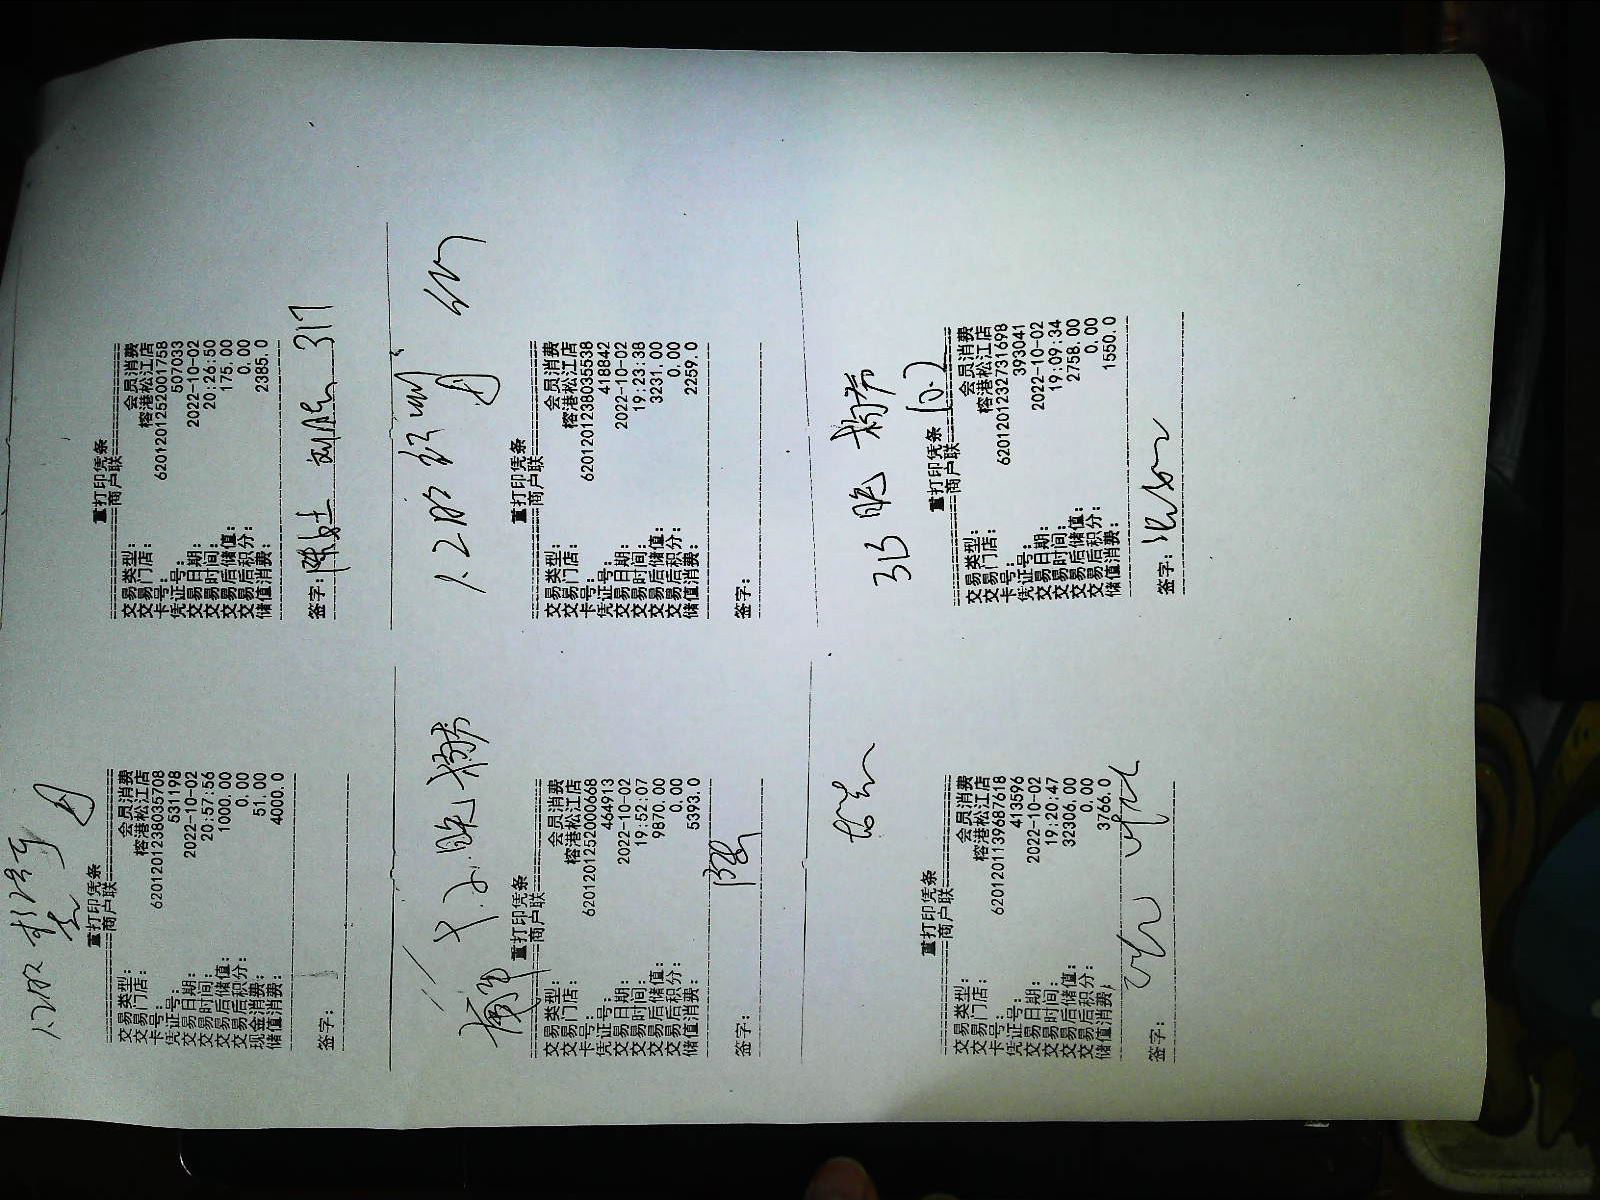 重打印凭条
商户联
交易类型: 会员消费
交易门店: 榕港松江店
卡号: 6201201238035708
凭证号: 531198
交易日期: 2022-10-02
交易时间: 20:57:56
交易后储值: 1000.00
交易后积分: 0.00
现金消费: 51.00
储值消费: 4000.0
签字:
重打印凭条
商户联
交易类型: 会员消费
交易门店: 榕港松江店
卡号: 6201201252001758
凭证号: 507033
交易日期: 2022-10-02
交易时间: 20:26:50
交易后储值: 175.00
交易后积分: 0.00
储值消费: 2385.0
签字: 317
重打印凭条
商户联
交易类型: 会员消费
交易门店: 榕港松江店
卡号: 6201201252000668
凭证号: 464913
交易日期: 2022-10-02
交易时间: 19:52:07
交易后储值: 9870.00
交易后积分: 0.00
储值消费: 5393.0
签字:
重打印凭条
商户联
交易类型: 会员消费
交易门店: 榕港松江店
卡号: 6201201238035538
凭证号: 418842
交易日期: 2022-10-02
交易时间: 19:23:38
交易后储值: 3231.00
交易后积分: 0.00
储值消费: 2259.0
签字:
重打印凭条
商户联
交易类型: 会员消费
交易门店: 榕港松江店
卡号: 6201201139687618
凭证号: 413596
交易日期: 2022-10-02
交易时间: 19:20:47
交易后储值: 32306.00
交易后积分: 0.00
储值消费: 3766.0
签字:
315 晚
10.2
重打印凭条
商户联
交易类型: 会员消费
交易门店: 榕港松江店
卡号: 6201201232731698
凭证号: 393041
交易日期: 2022-10-02
交易时间: 19:09:34
交易后储值: 2758.00
交易后积分: 0.00
储值消费: 1550.0
签字: